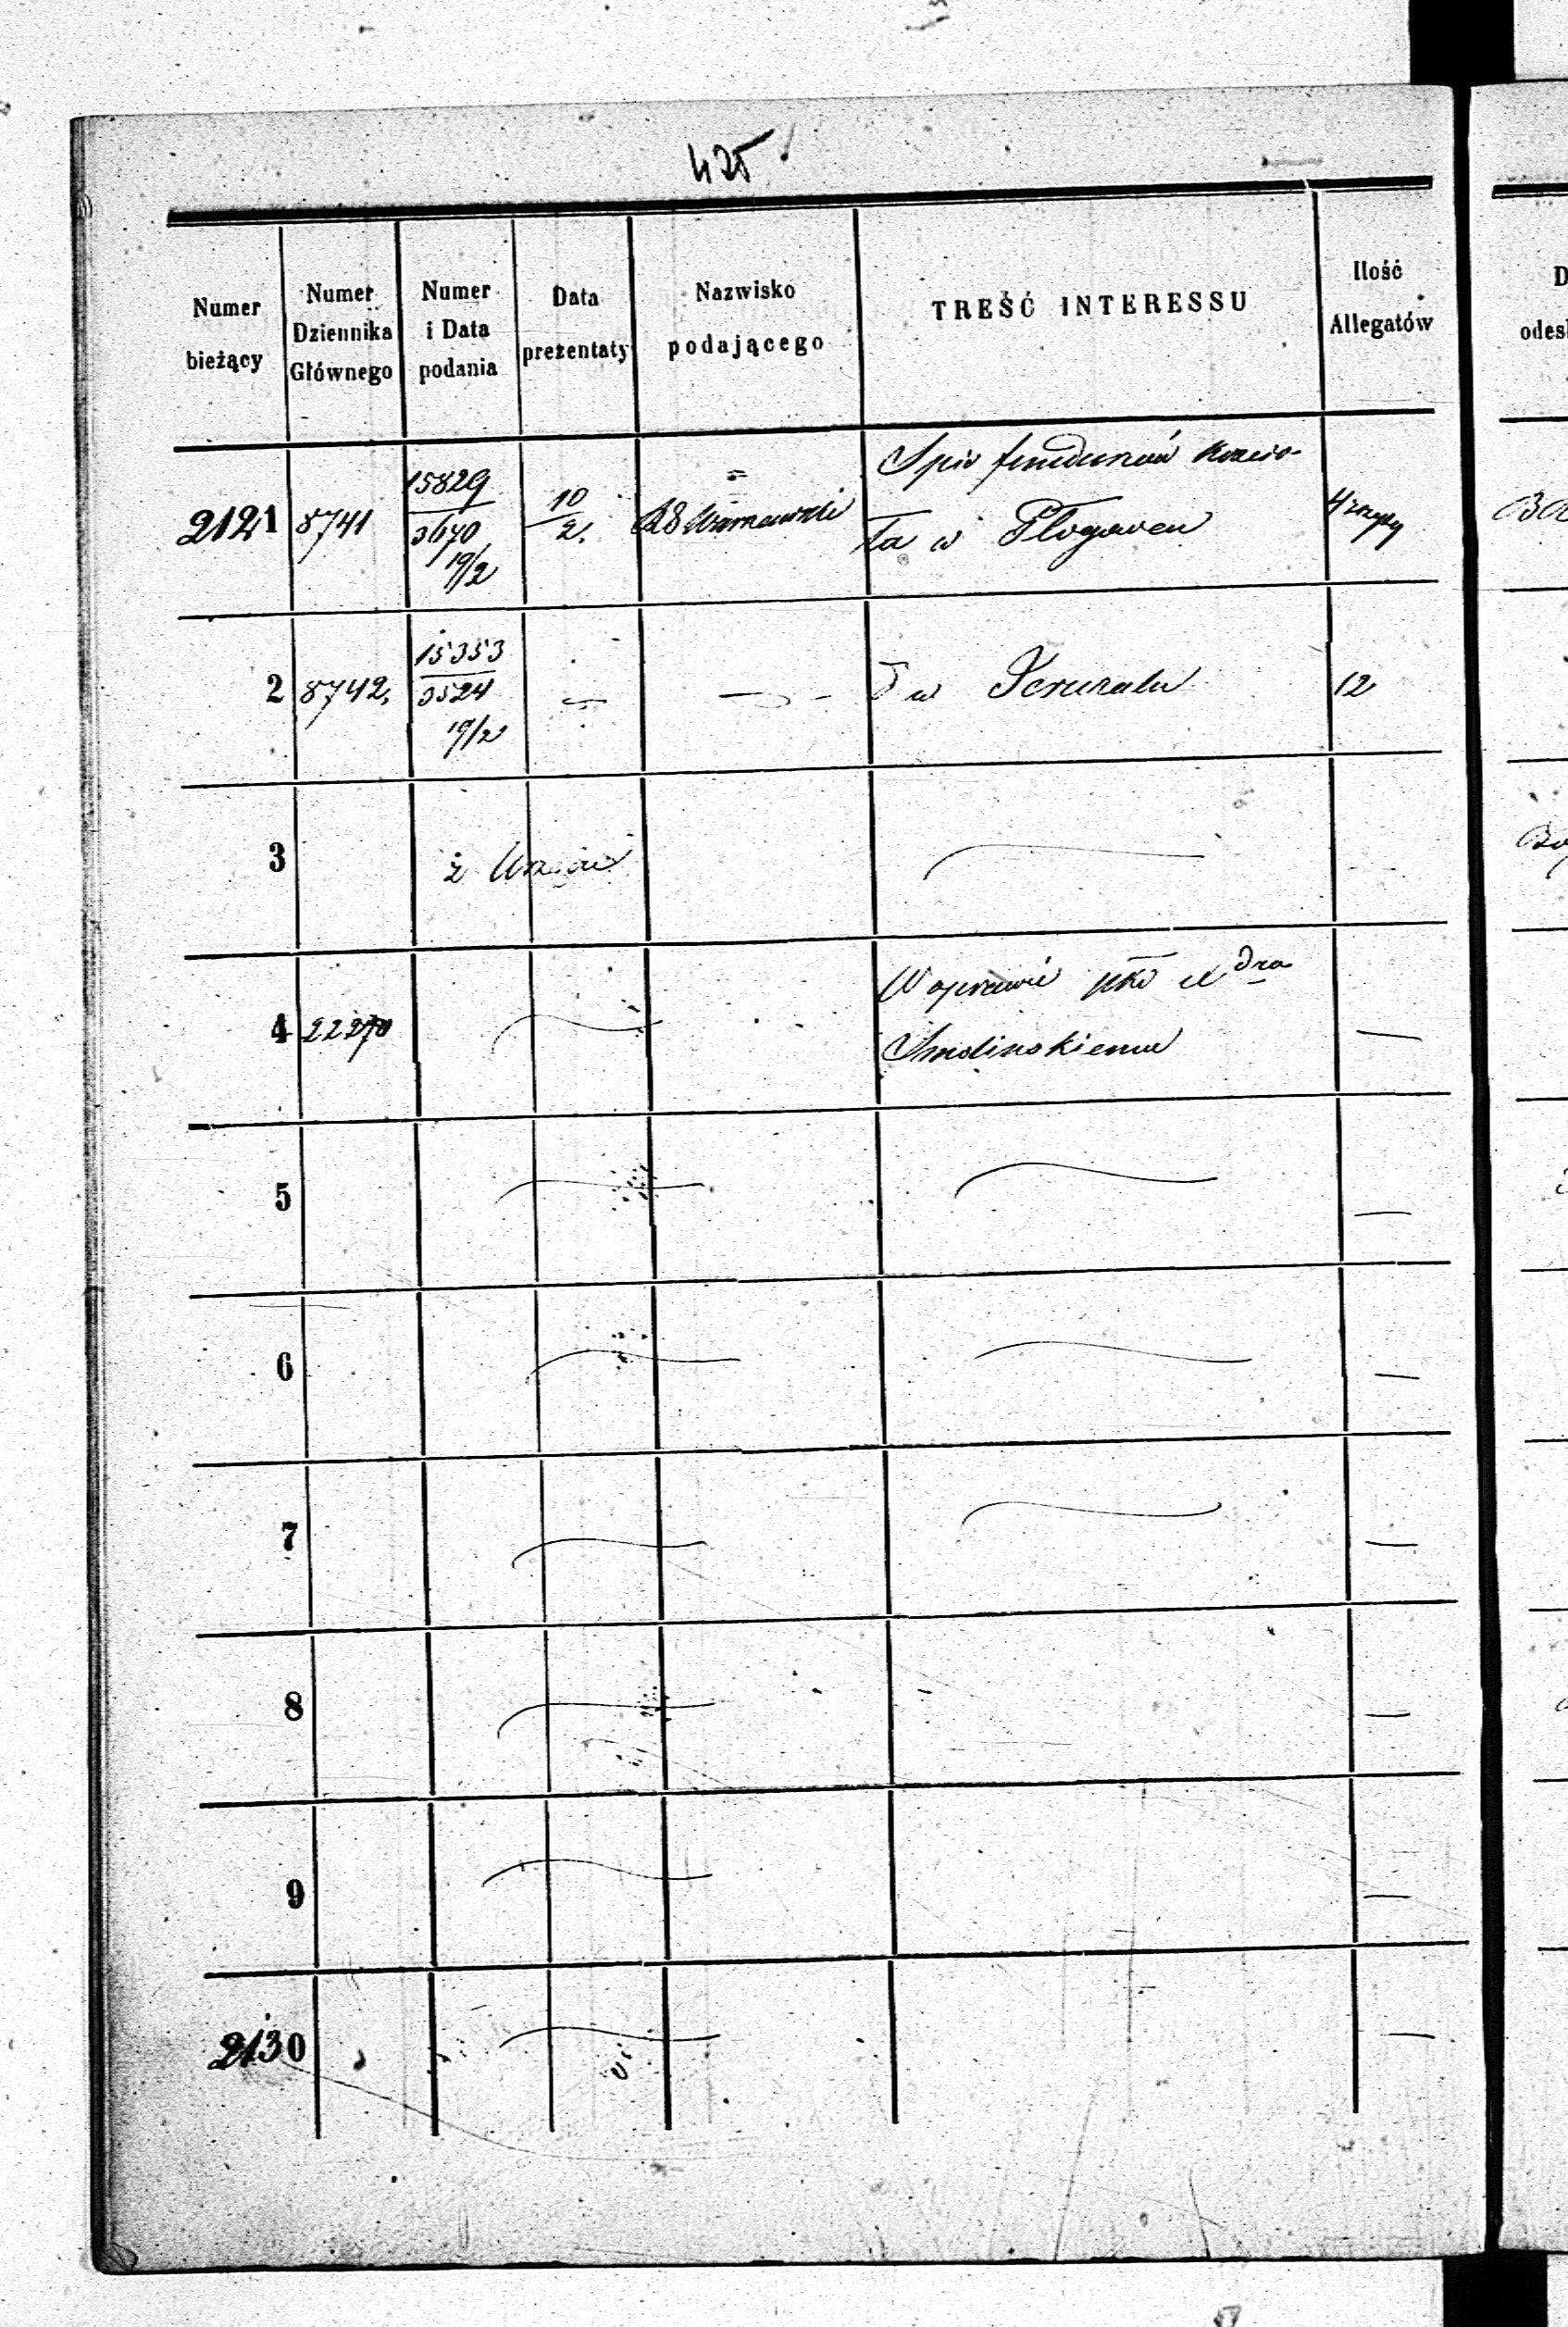 425
Numer bieżący
Numer Dziennika Głównego
Numer i Data podania
Data prezentaty
Nazwisko podającego
TREŚĆ INTERESSU
Ilość Allegatów
2121 8741 15829 / 3670 19/2 10/2. Spis funduszów kościo-
ła w
2 8742. 15353 / 3524 19/2 w Jeruzalu 12
3 z Urzędu
4 22270 W sprawie pko
Smolinskiemu
5
6
7
8
9
2130